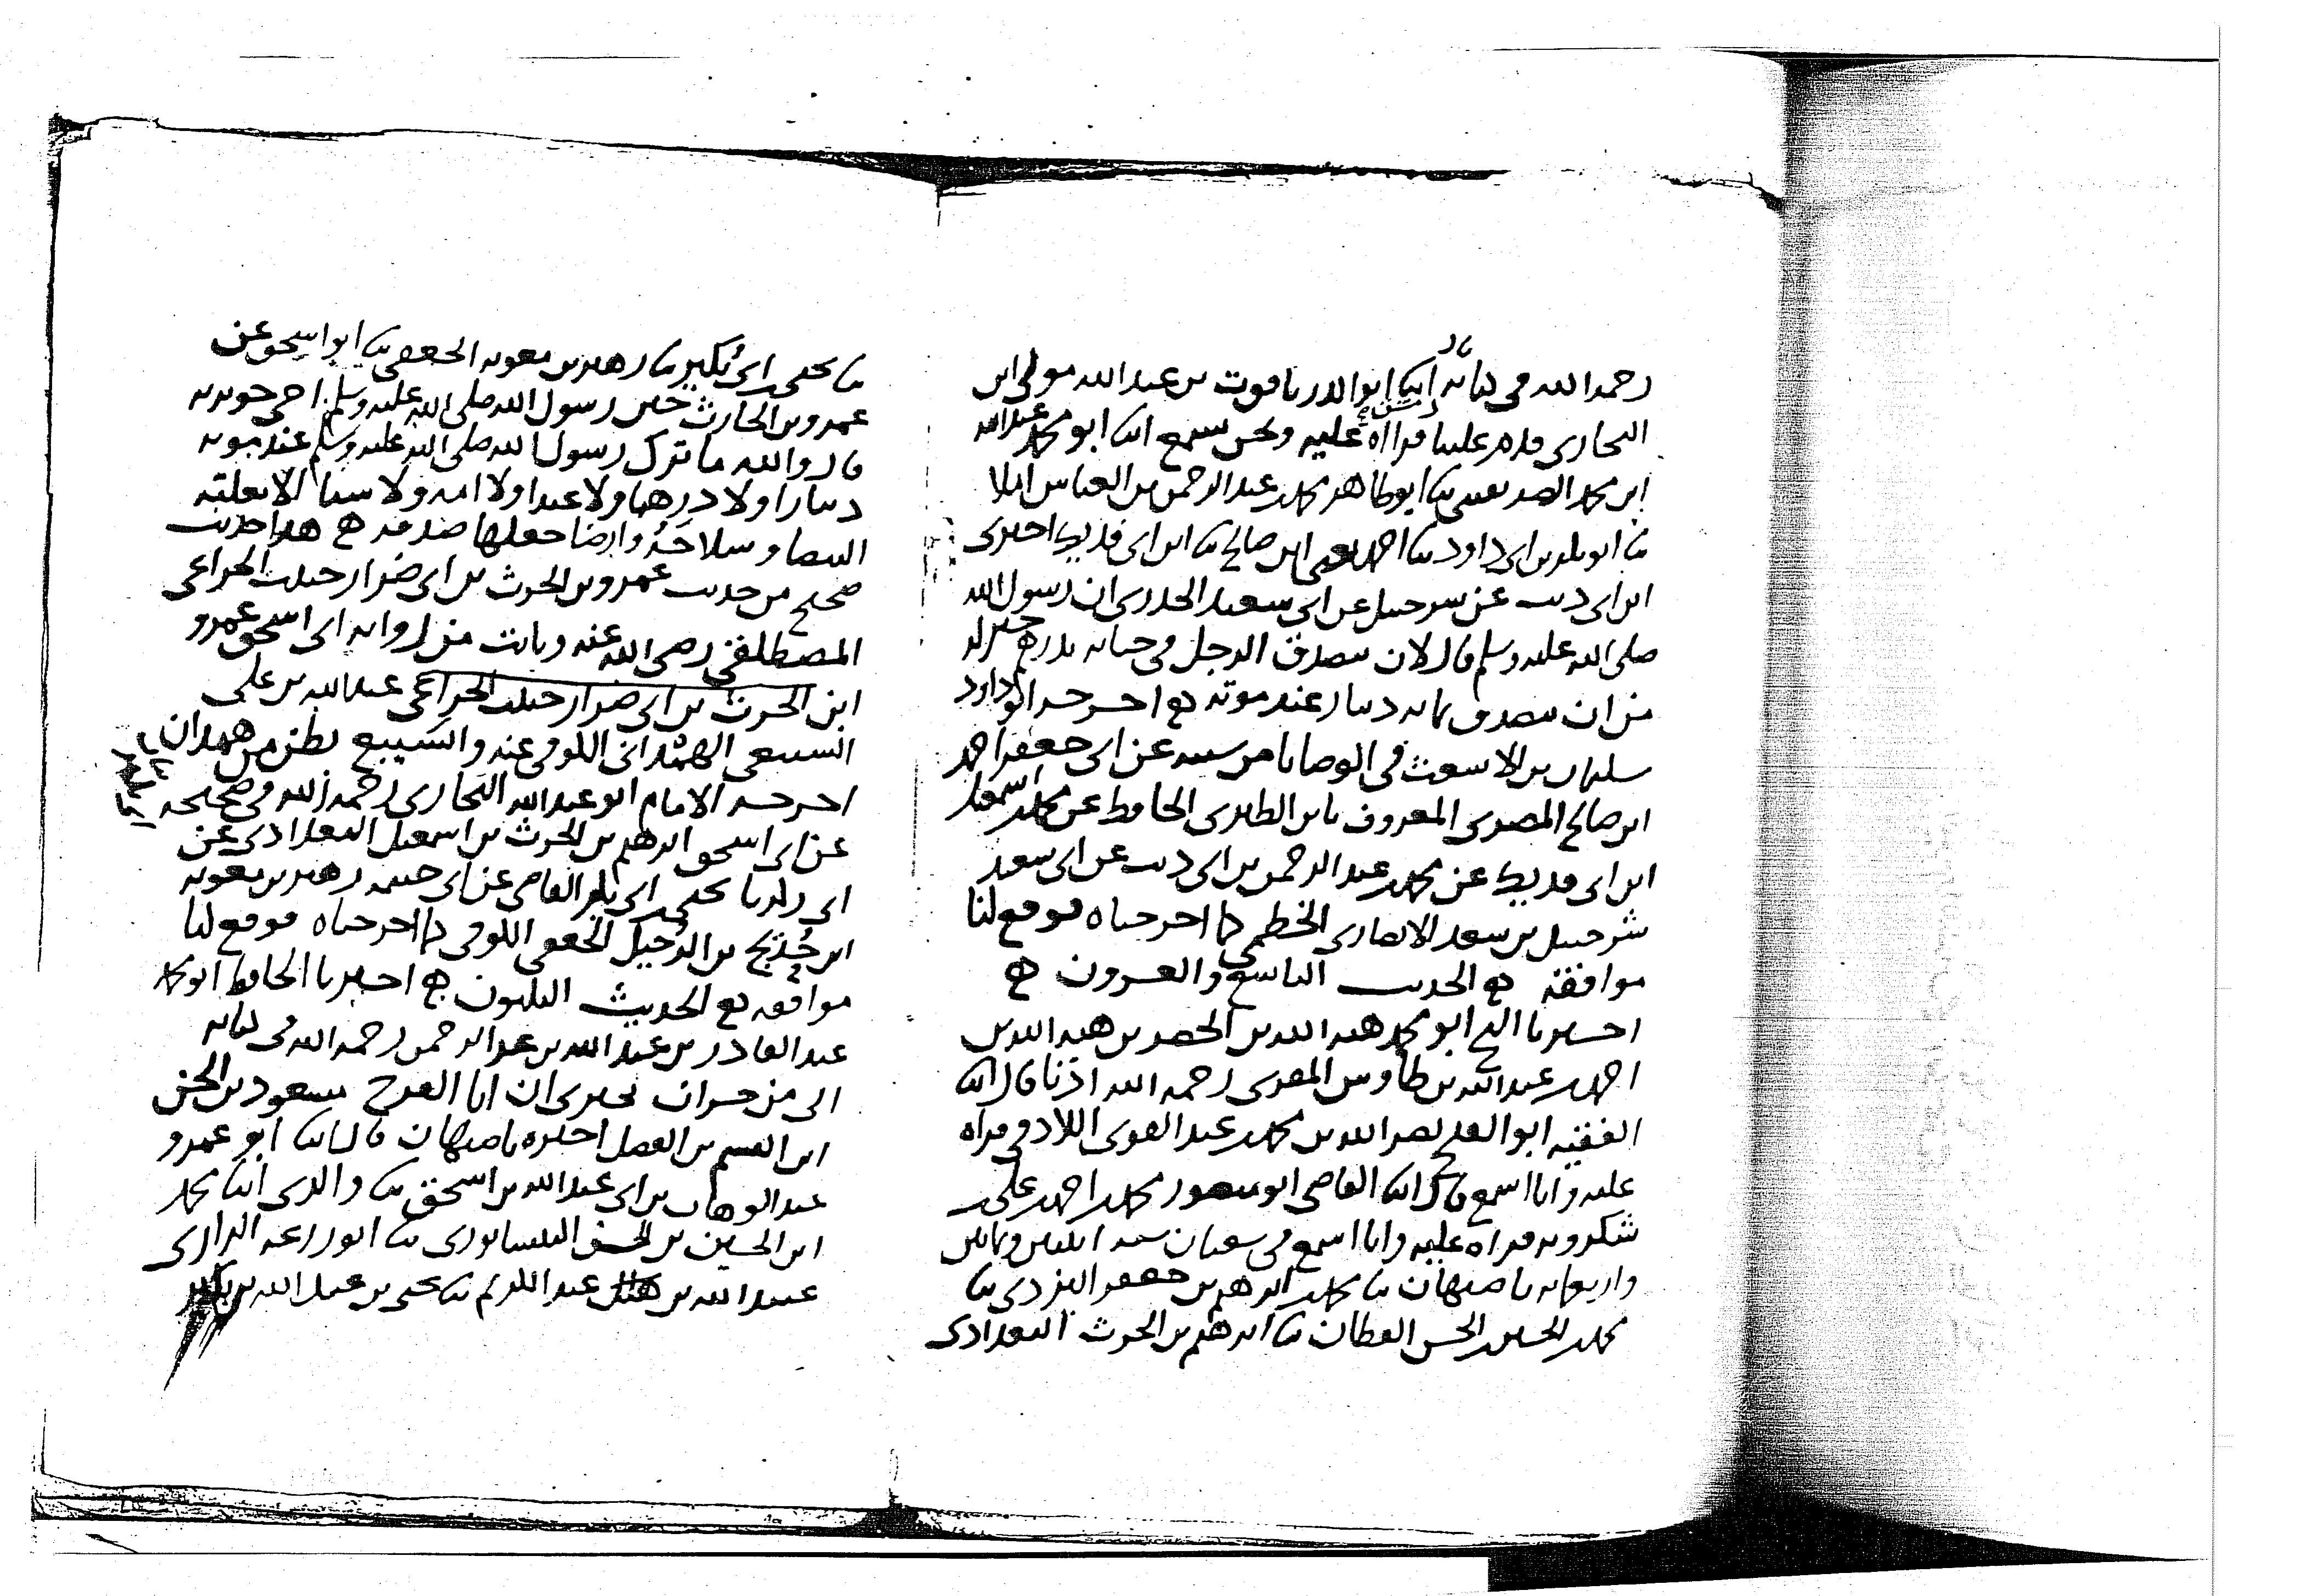 رحمه الله في كتابه قال ابنا ابو الدر ياقوت بن عبد الله مولى ابن
البخاري قدم علينا دمشق قراءة عليه ونحن نسمع ابنا ابو محمد عبد الله
ابن محمد الصريفيني ثنا ابو طاهر محمد بن عبد الرحمن بن العباس املا
ثنا ابو بكر بن ابي داود ثنا احمد يعني ابن صالح ثنا ابن ابي فديك اخبرني
ابن ابي ذئب عن شرحبيل عن ابي سعيد الخدري ان رسول الله
صلى الله عليه وسلم قال لان يتصدق الرجل في حياته بدرهم خير له
من ان يتصدق بمائة دينار عند موته اخرجه ابو داود
سليمان بن الاشعث في الوصايا من سننه عن ابي جعفر احمد
ابن صالح المصري المعروف بابن الطبري الحافظ عن محمد بن اسمعيل
ابن ابي فديك عن محمد بن عبد الرحمن بن ابي ذئب عن ابي سعد
شرحبيل بن سعد الانصاري الخطمي كما اخرجناه فوقع لنا
موافقة الحديث التاسع والعشرون
اخبرنا الشيخ ابو محمد هبة الله بن الخضر بن هبة الله بن
احمد بن عبد الله بن طاوس المقرى رحمه الله اذنا قال ابنا
الفقيه ابو الفتح نصر الله بن محمد بن عبد القوي اللاذقي قراه
عليه وانا اسمع قال ابنا القاضي ابو منصور محمد بن احمد بن علي
شكرويه قراه عليه وانا اسمع في شعبان سنة اثنتين وثمانين
واربعمائة باصبهان ثنا ابرهيم بن جعفر اليزدي ثنا
محمد بن الحسين بن الحسن القطان ثنا ابرهيم بن الحرث البغدادي
ثنا يحيى بن ابي بكير ثنا زهير بن معوية الجعفي ثنا ابو اسحق عن
عمرو بن الحارث ختن رسول الله صلى الله عليه وسلم اخي جويرية
قال والله ما ترك رسول الله صلى الله عليه وسلم عند موته
دينارا ولا درهما ولا عبدا ولا امة ولا شيئا الا بغلته
البيضا وسلاحه وارضا جعلها صدقة هذا حديث
صحيح من حديث عمرو بن الحرث بن ابي ضرار الخزاعي
المصطلقي رضي الله عنه وثابت من رواية ابي اسحق عمرو
ابن الحرث بن ابي ضرار الخزاعي عبد الله بن علي
السبيعي الهمداني الكوفي عنه والسبيع بطن من همدان
اخرجه الامام ابو عبد الله البخاري رحمه الله في صحيحه
عن ابي اسحق ابرهيم بن الحرث بن اسمعيل البغدادي عن
ابي زكريا يحيى بن ابي بكير القاضي عن ابي خيثمة زهير بن معوية
ابن حديج بن الرحيل الجعفي الكوفي كما اخرجناه فوقع لنا
موافقة الحديث الثلثون اخبرنا الحافظ ابو محمد
عبد القادر بن عبد الله بن عبد الرحمن رحمه الله في كتابه
الى من حران يخبرني ان ابا الفرج مسعود بن الحسن
ابن القسم بن الفضل اخبره باصبهان قال ابنا ابو عمرو
عبد الوهاب بن ابي عبد الله بن اسحق ثنا والدي ابنا محمد
ابن الحسين بن الحسن النيسابوري ثنا ابو زرعة الرازي
عبيد الله بن عبد الكريم ثنا يحيى بن عبد الله بن بكير